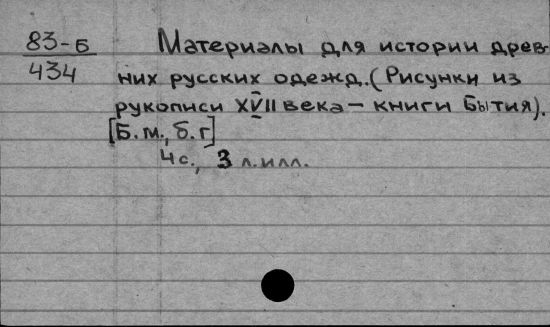 83-Б
434
Материалы для истории древ-
них русских одежд. (Рисунки из
рукописи XVII века — книги Бытия).
[Б.м., б.г]
4с., 3 л.илл.